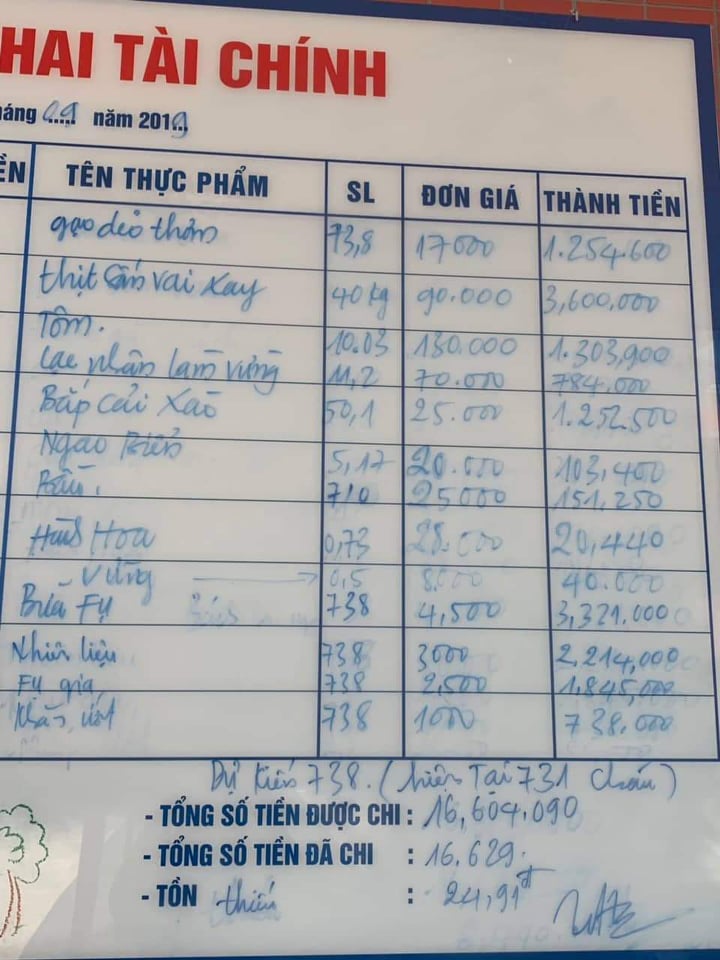 HAI TÀI CHÍNH
háng 09 năm 2019
ỀN TÊN THỰC PHẨM SL ĐƠN GIÁ THÀNH TIỀN
gạo dẻo thơm 73,8 17000 1.254.600
thịt sấn vai xay 40kg 90.000 3,600.000
Tôm. 10.03 130.000 1.303,900
Lạc nhân làm vừng 11,2 70.000 784,000
Bắp cải xào 50,1 25.000 1.252.500
Ngao biển 5,17 20.000 103,400
Bầu. 25000 151,250
Hành Hoa 0,73 28.000 20,440
Vừng 0,5 8.000 40.000
Bữa Fụ 738 4,500 3,321.000
Nhiên liệu 738 3000 2,214,000
Fụ gia 738 2,500 1,845,000
Khăn ướt 738 1000 738.000
Dự kiến 738. (hiện Tại 731 cháu)
- TỔNG SỐ TIỀN ĐƯỢC CHI : 16,604,090
- TỔNG SỐ TIỀN ĐÃ CHI : 16.629.
- TỒN thiếu : 24,91đ